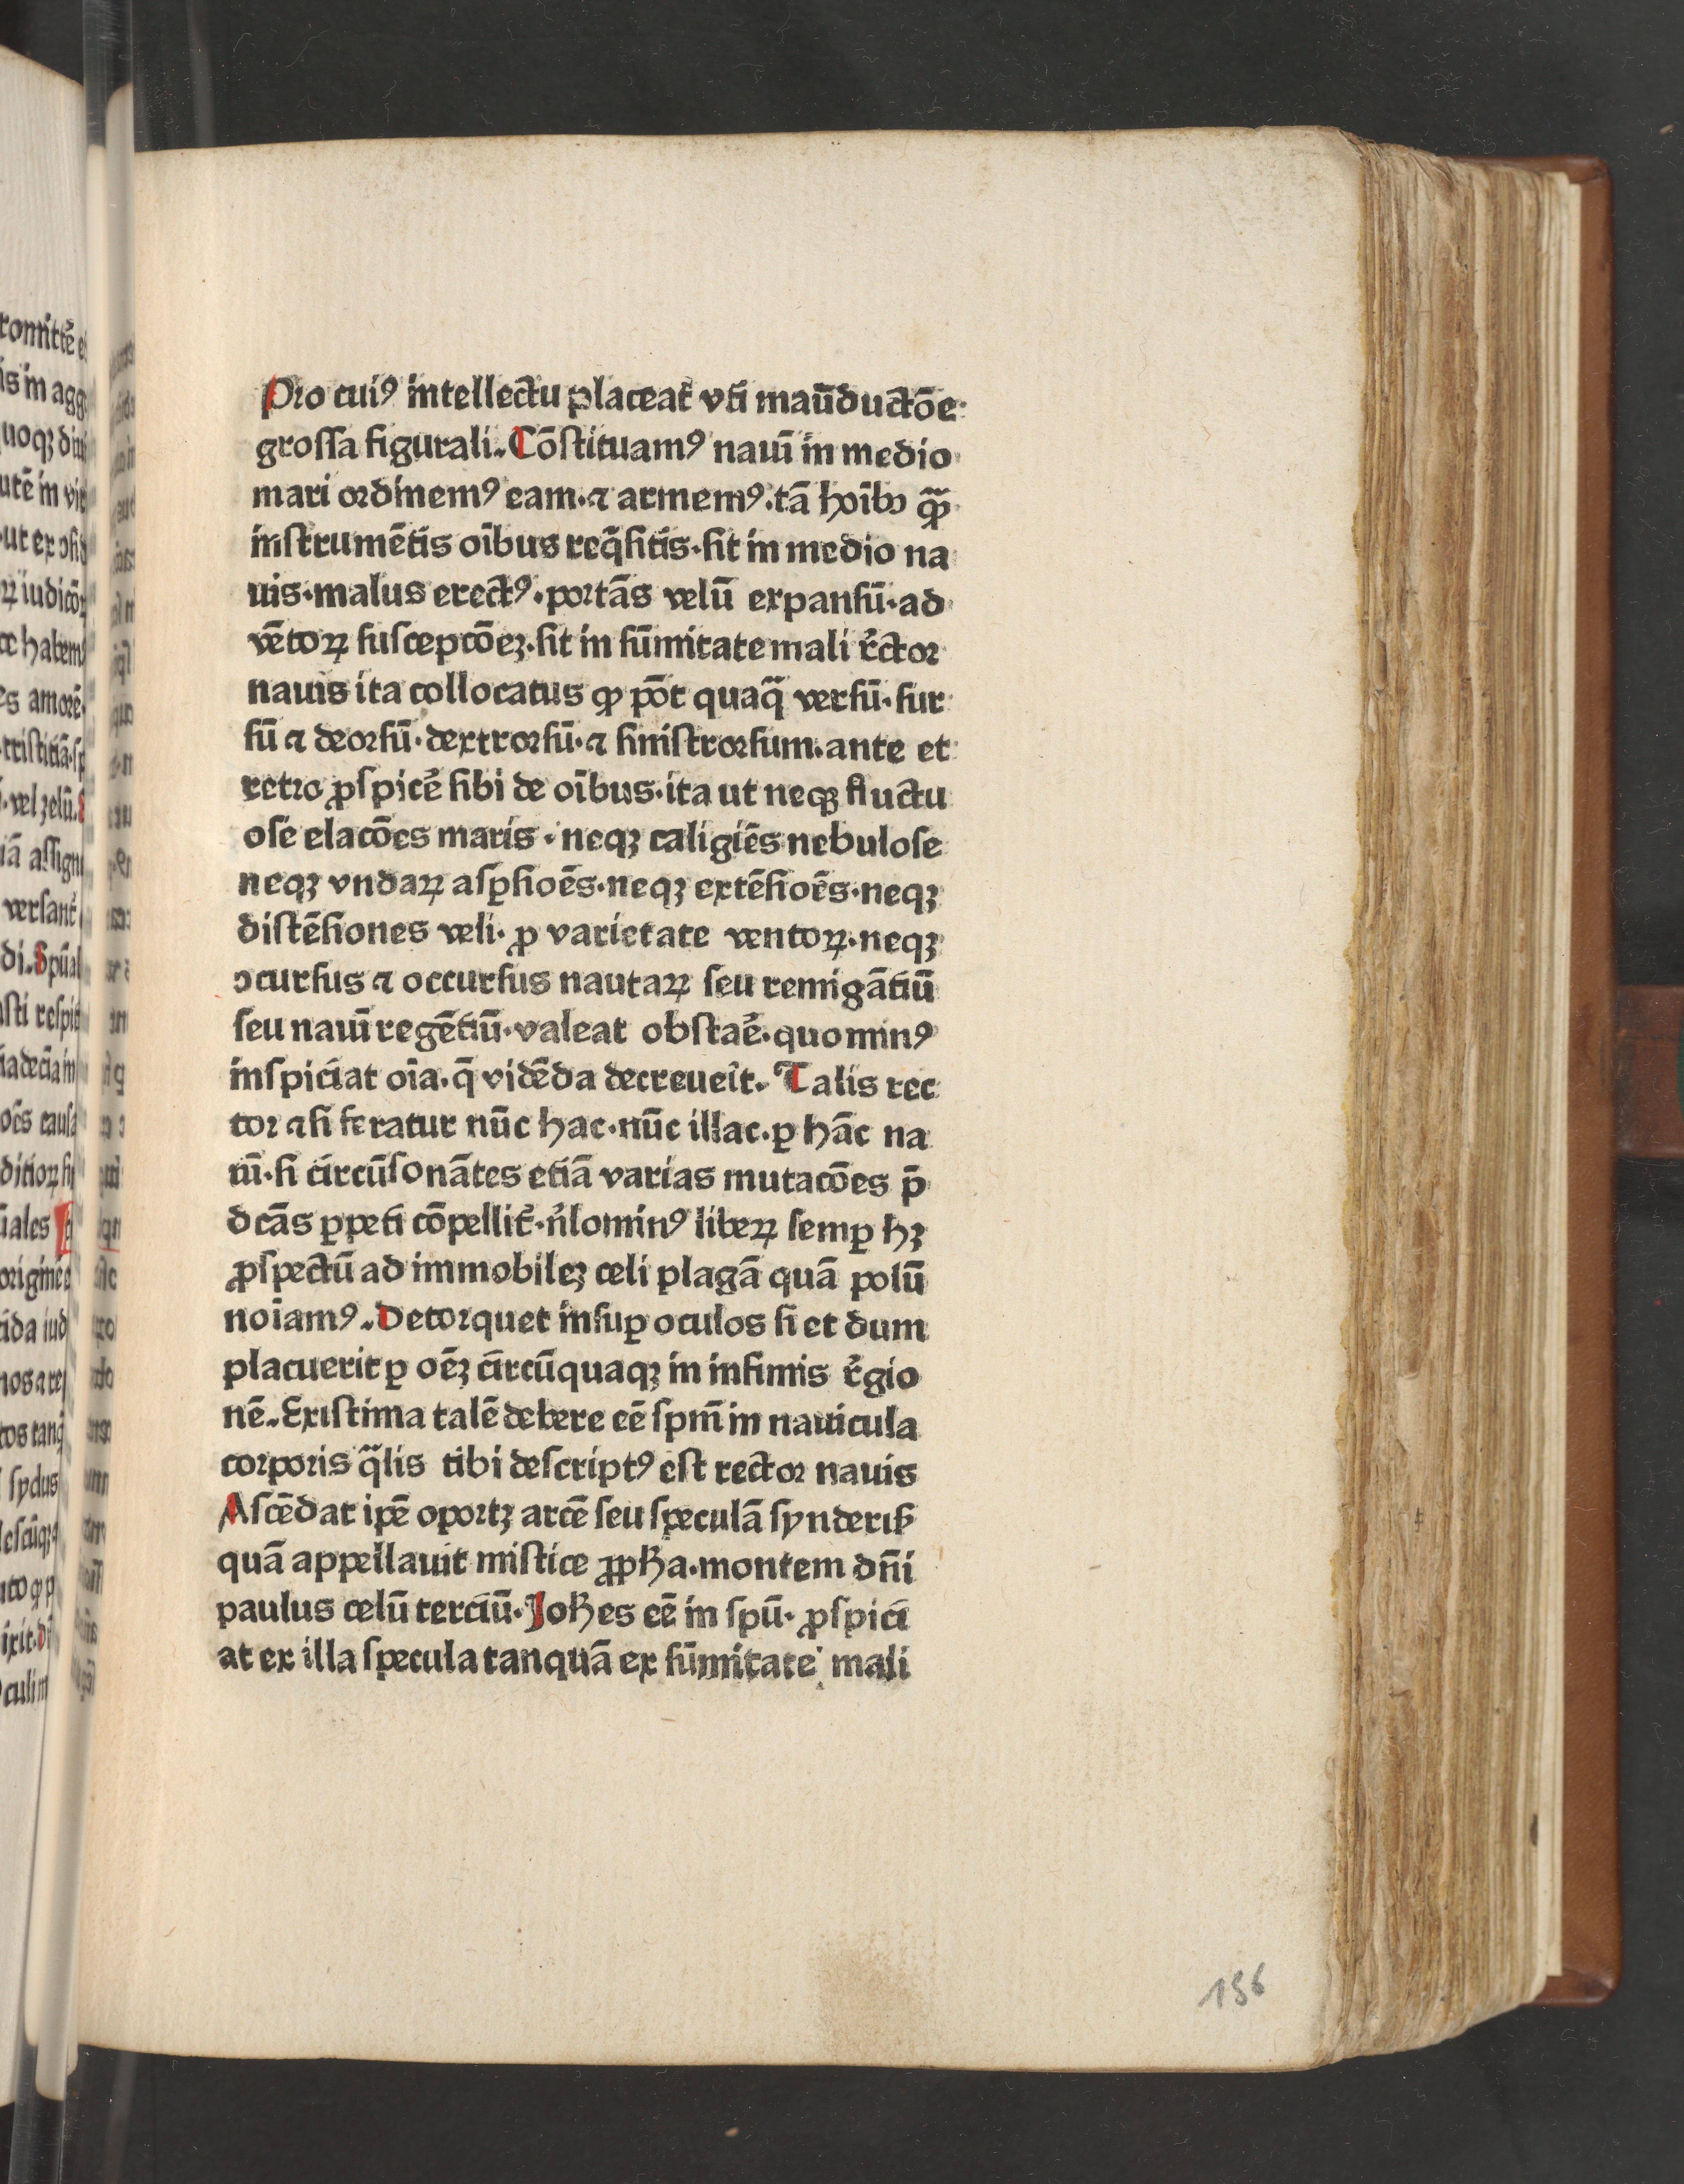 Pro cuiꝰ intellectu placeat̃ vti maũductõe
grossa figurali. Cõstituamꝰ nauĩ in medio
mari ordinemꝰ eam. ⁊ armemꝰ. tã hoĩbꝫ qᷓꝫ
instrumẽtis oĩbus req̃sitis. sit in medio na
uis. malus erectꝰ. portãs velũ expansũ. ad
vẽtoꝝ suscepcõeꝫ. sit in sũmitate mali r̃ctor
nauis ita collocatus ꝙ põt quaq̃ versũ. sur
sũ ⁊ deorsũ. dextrorsũ. ⁊ sinistrorsum. ante et
retro ꝓspicẽ sibi de oĩbus. ita ut neqꝫ fluctu
ose elacões maris. neqꝫ caligiẽs nebulose
neqꝫ vndaꝝ asꝑsioẽs. neqꝫ extẽsioẽs. neqꝫ
distẽsiones veli. ꝓ varietate ventoꝝ. neqꝫ
ꝯcursus ⁊ occursus nautaꝝ seu remigãtiũ
seu nauĩ regẽtiũ. valeat obstaẽ. quominꝰ
inspiciat oĩa. q̃ vidẽda decreueĩt. Talis rec
tor ⁊si feratur nũc hac. nũc illac. ꝑ hãc na
uĩ. si circũsonãtes etiã varias mutacões p̃
dcãs ꝑpeti cõpellit̃. ñlominꝰ libeꝝ semꝑ hꝫ
ꝓspectũ ad immobileꝫ celi plagã quã polũ
noĩamꝰ. Detorquet insuꝑ oculos si et dum
placuerit ꝑ oẽꝫ circũquaqꝫ in infimis r̃gio
nẽ. Existima talẽ debere eẽ spm̃ in nauicula
corporis q̃lis tibi descriptꝰ est rector nauis
Ascẽdat ipẽ oportꝫ arcẽ seu speculã synderis̃
quã appellauit mistice ꝓph̃a. montem dñi
paulus celũ terciũ. Joh̃es eẽ in spũ. ꝓspici
at ex illa specula tanquã ex sũmitate mali
156